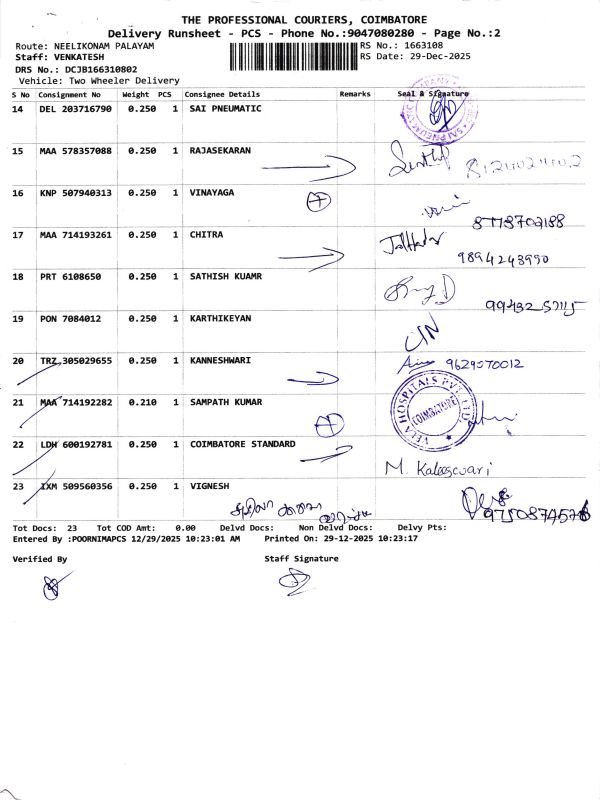 THE PROFESSIONAL COURIERS, COIMBATORE
Delivery Runsheet - PCS - Phone No.:9047080280 - Page No.:2
Route: NEELIKONAM PALAYAM RS No.: 1663108
Staff: VENKATESH RS Date: 29-Dec-2025
DRS No.: DCJB166310802
Vehicle: Two Wheeler Delivery
S No Consignment No Weight PCS Consignee Details Remarks Seal & Signature
14 DEL 203716790 0.250 1 SAI PNEUMATIC
15 MAA 578357088 0.250 1 RAJASEKARAN
16 KNP 507940313 0.250 1 VINAYAGA
17 MAA 714193261 0.250 1 CHITRA
9894243990
18 PRT 6108650 0.250 1 SATHISH KUAMR
19 PON 7084012 0.250 1 KARTHIKEYAN
20 TRZ 305029655 0.250 1 KANNESHWARI 9629570012
21 MAA 714192282 0.210 1 SAMPATH KUMAR
VELA HOSPITALS PVT. LTD.
COIMBATORE
22 LDH 600192781 0.250 1 COIMBATORE STANDARD
M. Kaleeswari
23 IXM 509560356 0.250 1 VIGNESH
Tot Docs: 23 Tot COD Amt: 0.00 Delvd Docs: Non Delvd Docs: Delvy Pts:
Entered By :POORNIMAPCS 12/29/2025 10:23:01 AM Printed On: 29-12-2025 10:23:17
Verified By Staff Signature